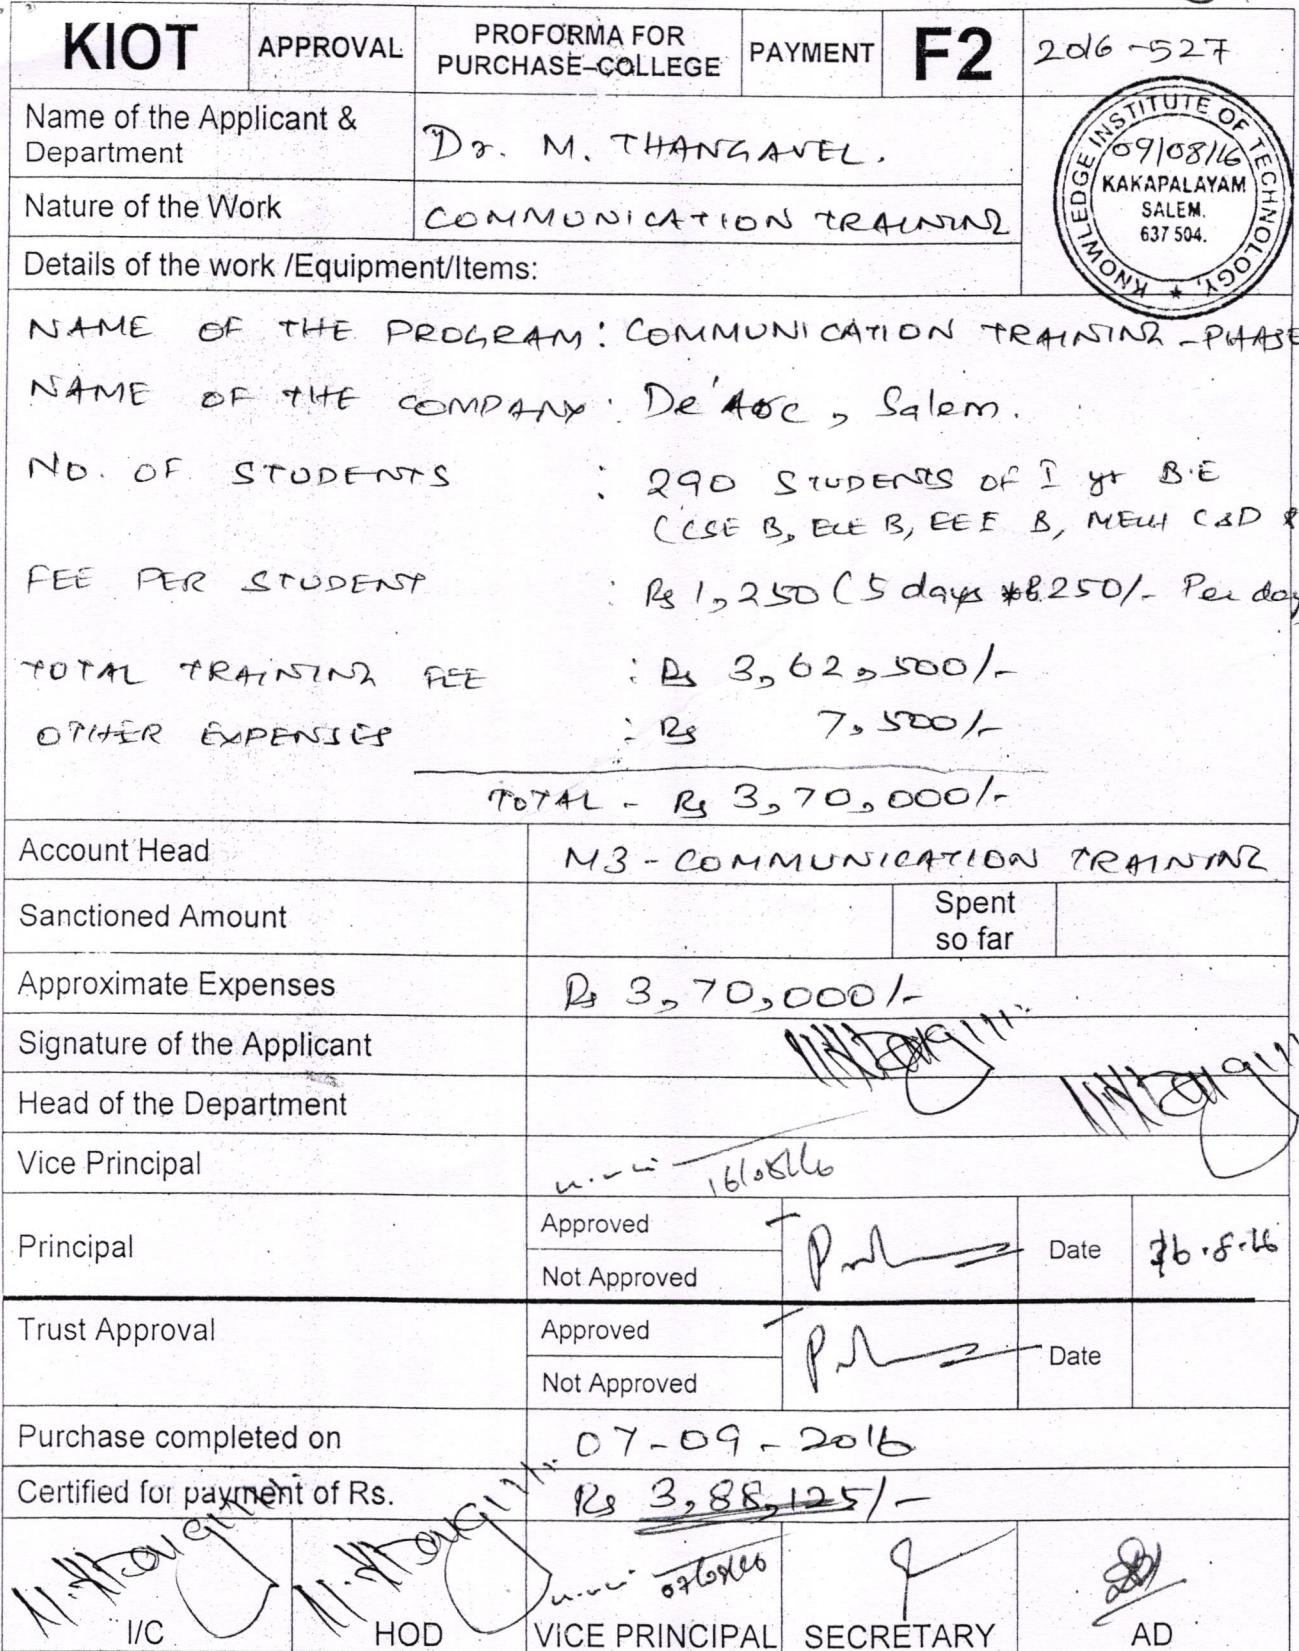 KIOT APPROVAL PROFORMA FOR PURCHASE-COLLEGE PAYMENT F2 2016-527
Name of the Applicant & Department Dr. M. THANGAVEL.
KNOWLEDGE INSTITUTE OF TECHNOLOGY,
09/08/16
KAKAPALAYAM
SALEM.
637 504.
Nature of the Work COMMUNICATION TRAINING
Details of the work /Equipment/Items:
NAME OF THE PROGRAM : COMMUNICATION TRAINING - PHASE
NAME OF THE COMPANY : De' , Salem.
NO. OF STUDENTS : 290 STUDENTS OF I yr B.E
(CSE B, ECE B, EEE B, MECH C&D &
FEE PER STUDENT : Rs 1,250 (5 days * 250/- Per day
TOTAL TRAINING FEE : Rs 3,62,500/-
OTHER EXPENSES : Rs 7,500/-
TOTAL - Rs 3,70,000/-
Account Head M3 - COMMUNICATION TRAINING
Sanctioned Amount Spent so far
Approximate Expenses Rs 3,70,000/-
Signature of the Applicant
Head of the Department
Vice Principal 16/08/16
Principal Approved Date 16.8.16
Not Approved
Trust Approval Approved Date
Not Approved
Purchase completed on 07-09-2016
Certified for payment of Rs. Rs 3,88,125/-
I/C HOD VICE PRINCIPAL SECRETARY AD